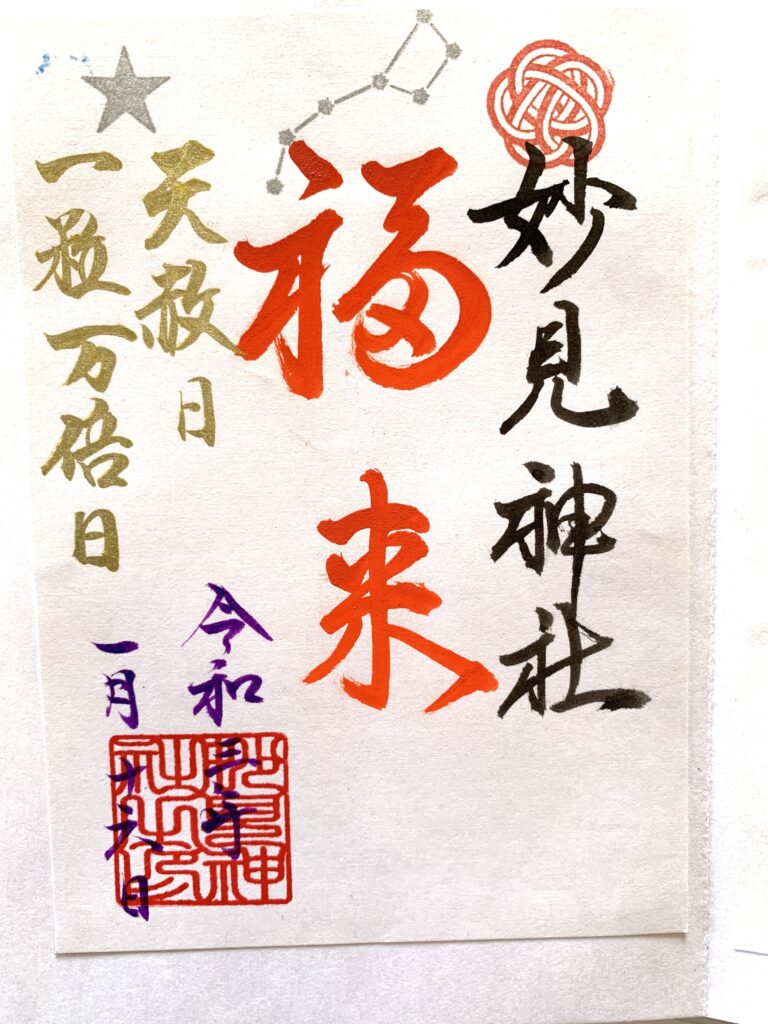 妙見神社
福来
天赦日
一粒万倍日
令和三年
一月十六日